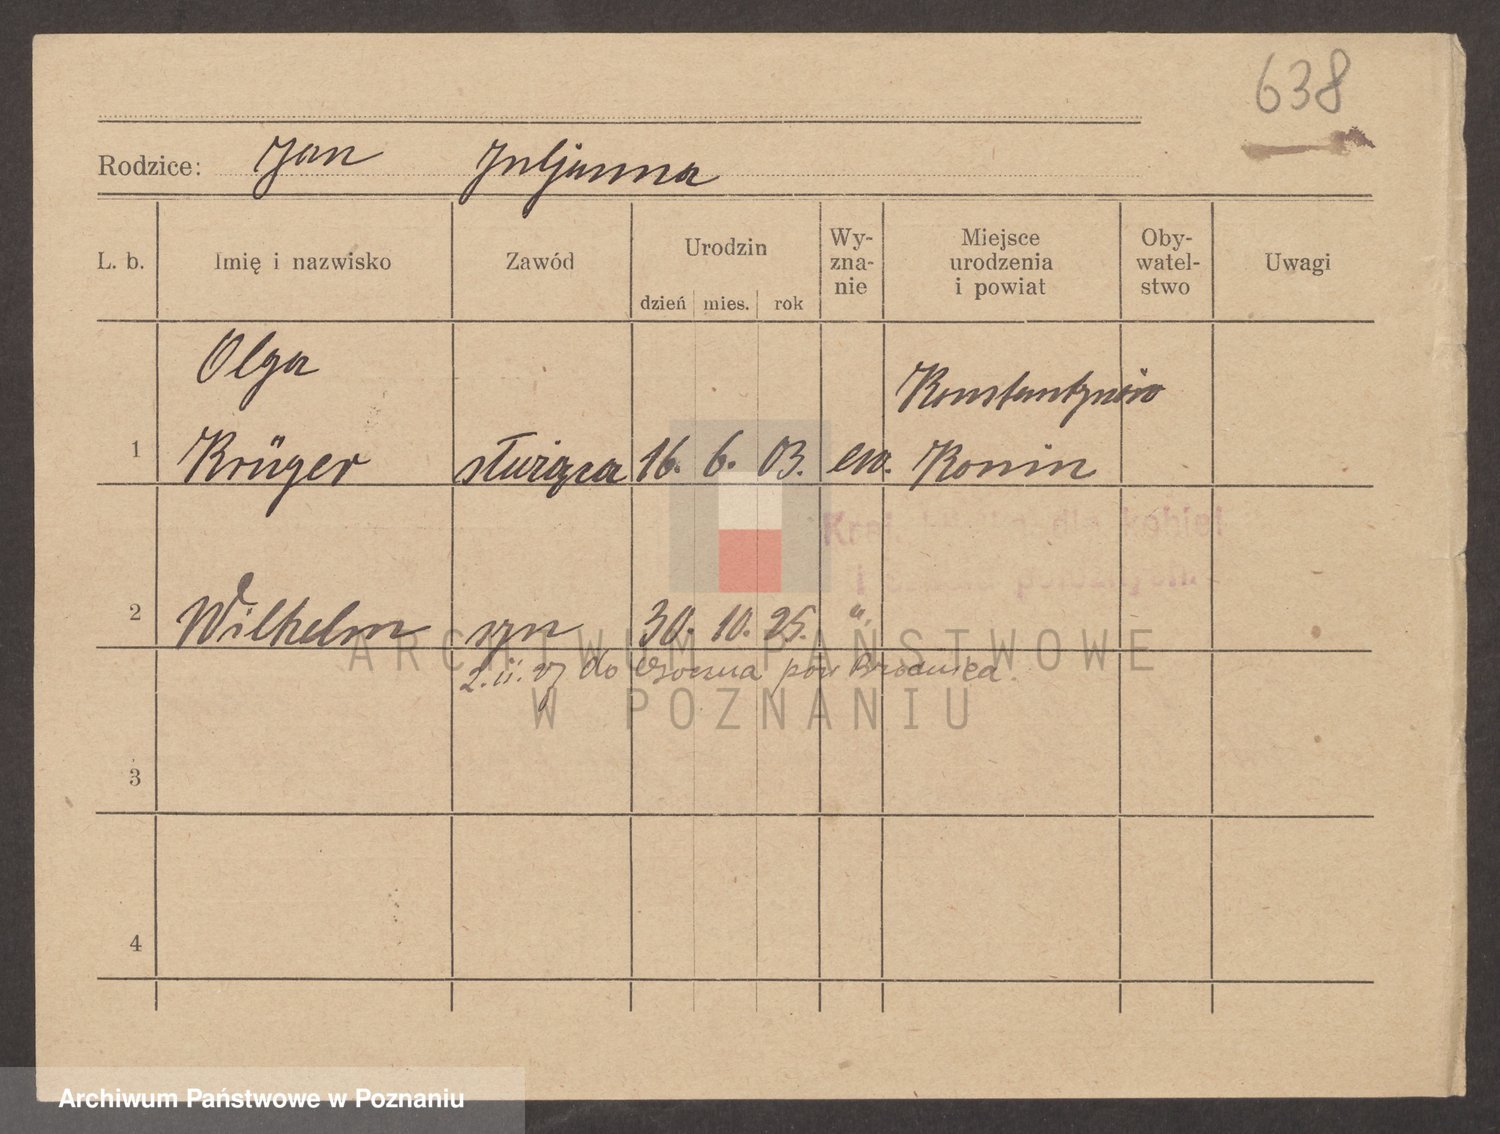 638
Rodzice: Jan Juljanna
L. b. Imię i nazwisko Zawód Urodzin dzień mies. rok Wy-zna-nie Miejsce urodzenia i powiat Oby-watel-stwo Uwagi
Olga Konstantynów
1 Krüger służąca 16. 6. 03. ew. Konin
Kraj. dla kobiet
i położnych
2 Wilhelm syn 30. 10. 25. "
2. ii. do pow Brodnica.
ARCHIWUM PAŃSTWOWE
W POZNANIU
3
4
Archiwum Państwowe w Poznaniu